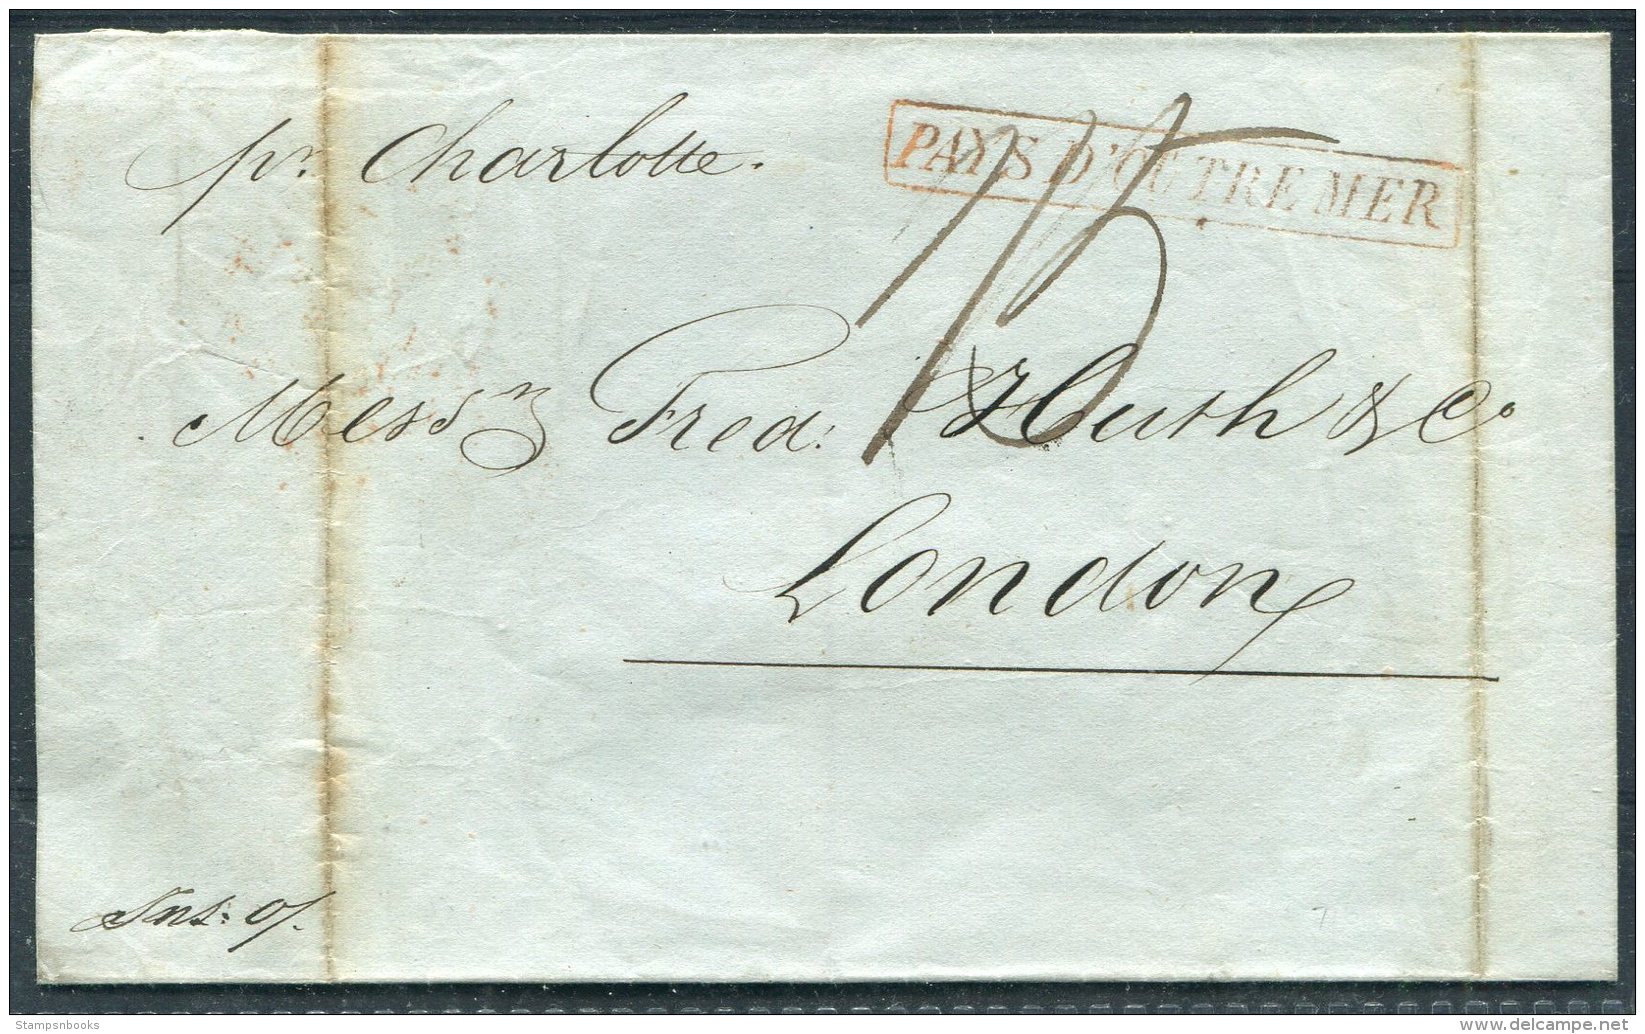 pr Charlotte.
PAYS D'OUTREMER
Messrs Fred: Huth & Co.
London
Stampsnbooks
delcampe.net